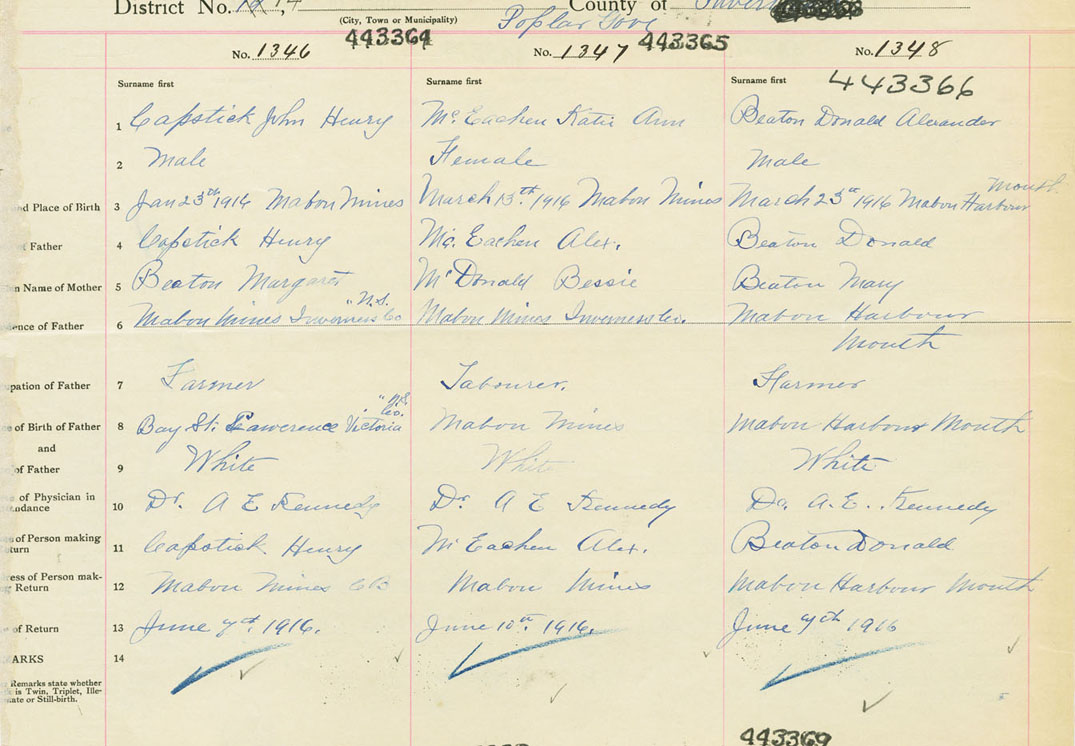 District No. 14 County of
(City, Town or Municipality)
Poplar Gove
443364 443365
No. 1346 No. 1347 No. 1348
443366
Surname first Surname first Surname first
1 Capstick John Henry Mc. Eachen Katie Ann Beaton Donald Alexander
2 Male Female Male
nd Place of Birth 3 Jan 23th 1916 Mabou Mines March 13th. 1916 Mabou Mines March 23rd 1916 Mabou Harbour Mouth
Father 4 Capstick Henry Mc. Eachen Alex. Beaton Donald
n Name of Mother 5 Beaton Margaret Mc Donald Bessie Beaton Mary
ence of Father 6 Mabou Mines Inverness Co " N.S. Mabou Mines Inverness Co. Mabou Harbour
Mouth
pation of Father 7 Farmer Labourer. Farmer
e of Birth of Father 8 Bay St. Lawerence Victoria Co. " N.S. Mabou Mines Mabou Harbour Mouth
and
of Father 9 White White White
of Physician in
ndance 10 Dr. A E Kennedy Dr. A E Kennedy Dr. A. E. Kennedy
of Person making
eturn 11 Capstick. Henry Mc Eachen Alex. Beaton Donald
ress of Person mak-
g Return 12 Mabou Mines CB Mabou Mines Mabou Harbour Mouth
of Return 13 June 7th. 1916. June 10th 1916. June 9th 1916
ARKS 14
Remarks state whether
is Twin, Triplet, Ille-
ate or Still-birth.
443369